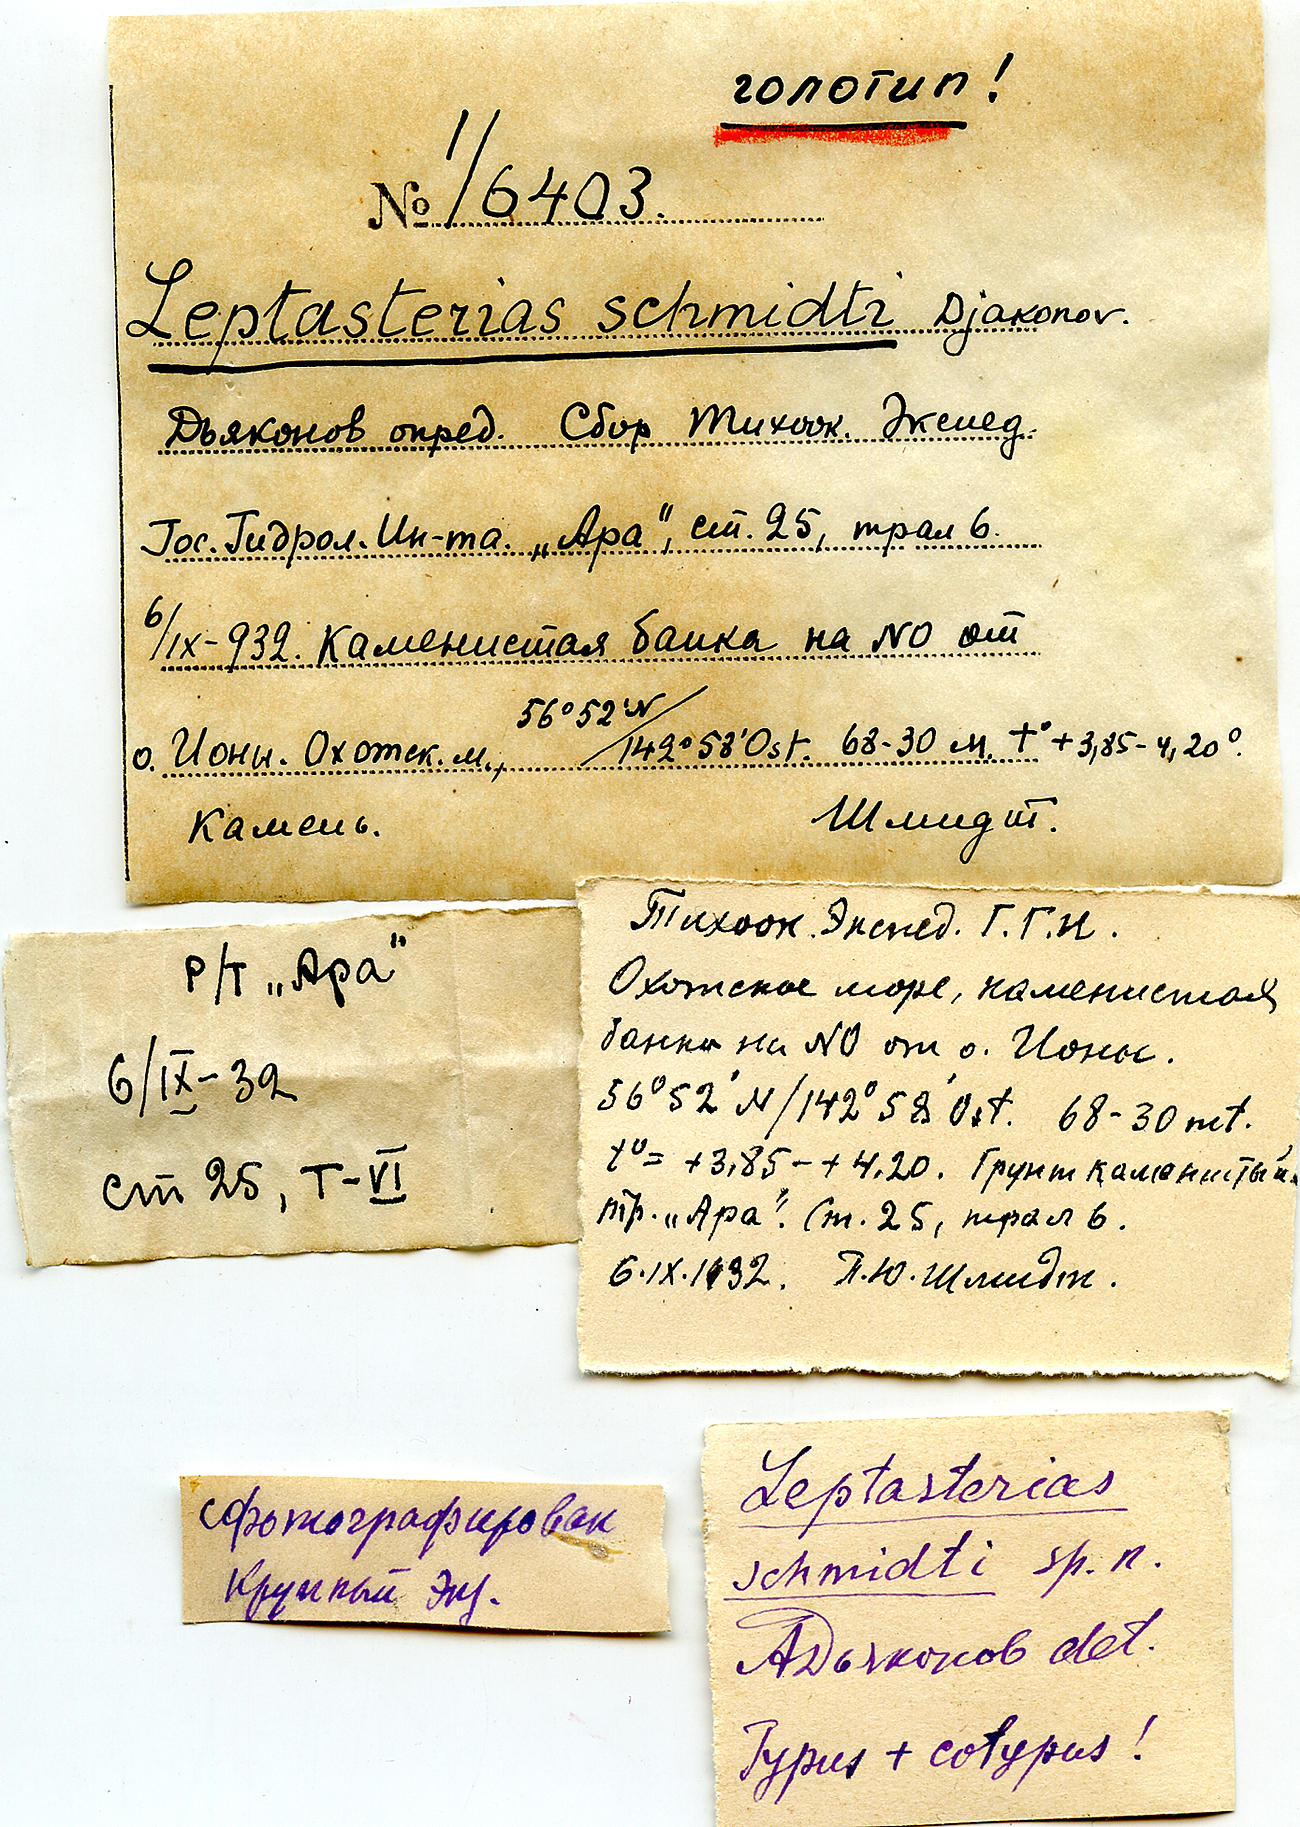 голотип!
№ 1/6403.
Leptasterias schmidti Djakonov.
Дьяконов опред. Сбор Тихоок. Экспед.
Гос. Гидрол. Ин-та. „Ара", ст. 25, трал 6.
6/IX-932. Каменистая банка на NO от
о. Ионы. Охотск. м., 56°52'N/142°58'Ost. 68-30 м. t°+3,85-4,20°.
Камень. Шмидт.
Р/Т „Ара"
6/IX-32
ст 25, Т-VI
Тихоок. Экспед. Г.Г.И.
Охотское море, каменистая
банка на NO от о. Ионы.
56°52'N/142°58'Ost. 68-30 mt.
t°= +3,85-+4,20. Грунт каменистый.
тр. „Ара". Ст. 25, трал 6.
6.IX.1932. П.Ю. Шмидт.
сфотографирован
крупный экз.
Leptasterias
schmidti sp. n.
АДьяконов det.
Typus + cotypus!